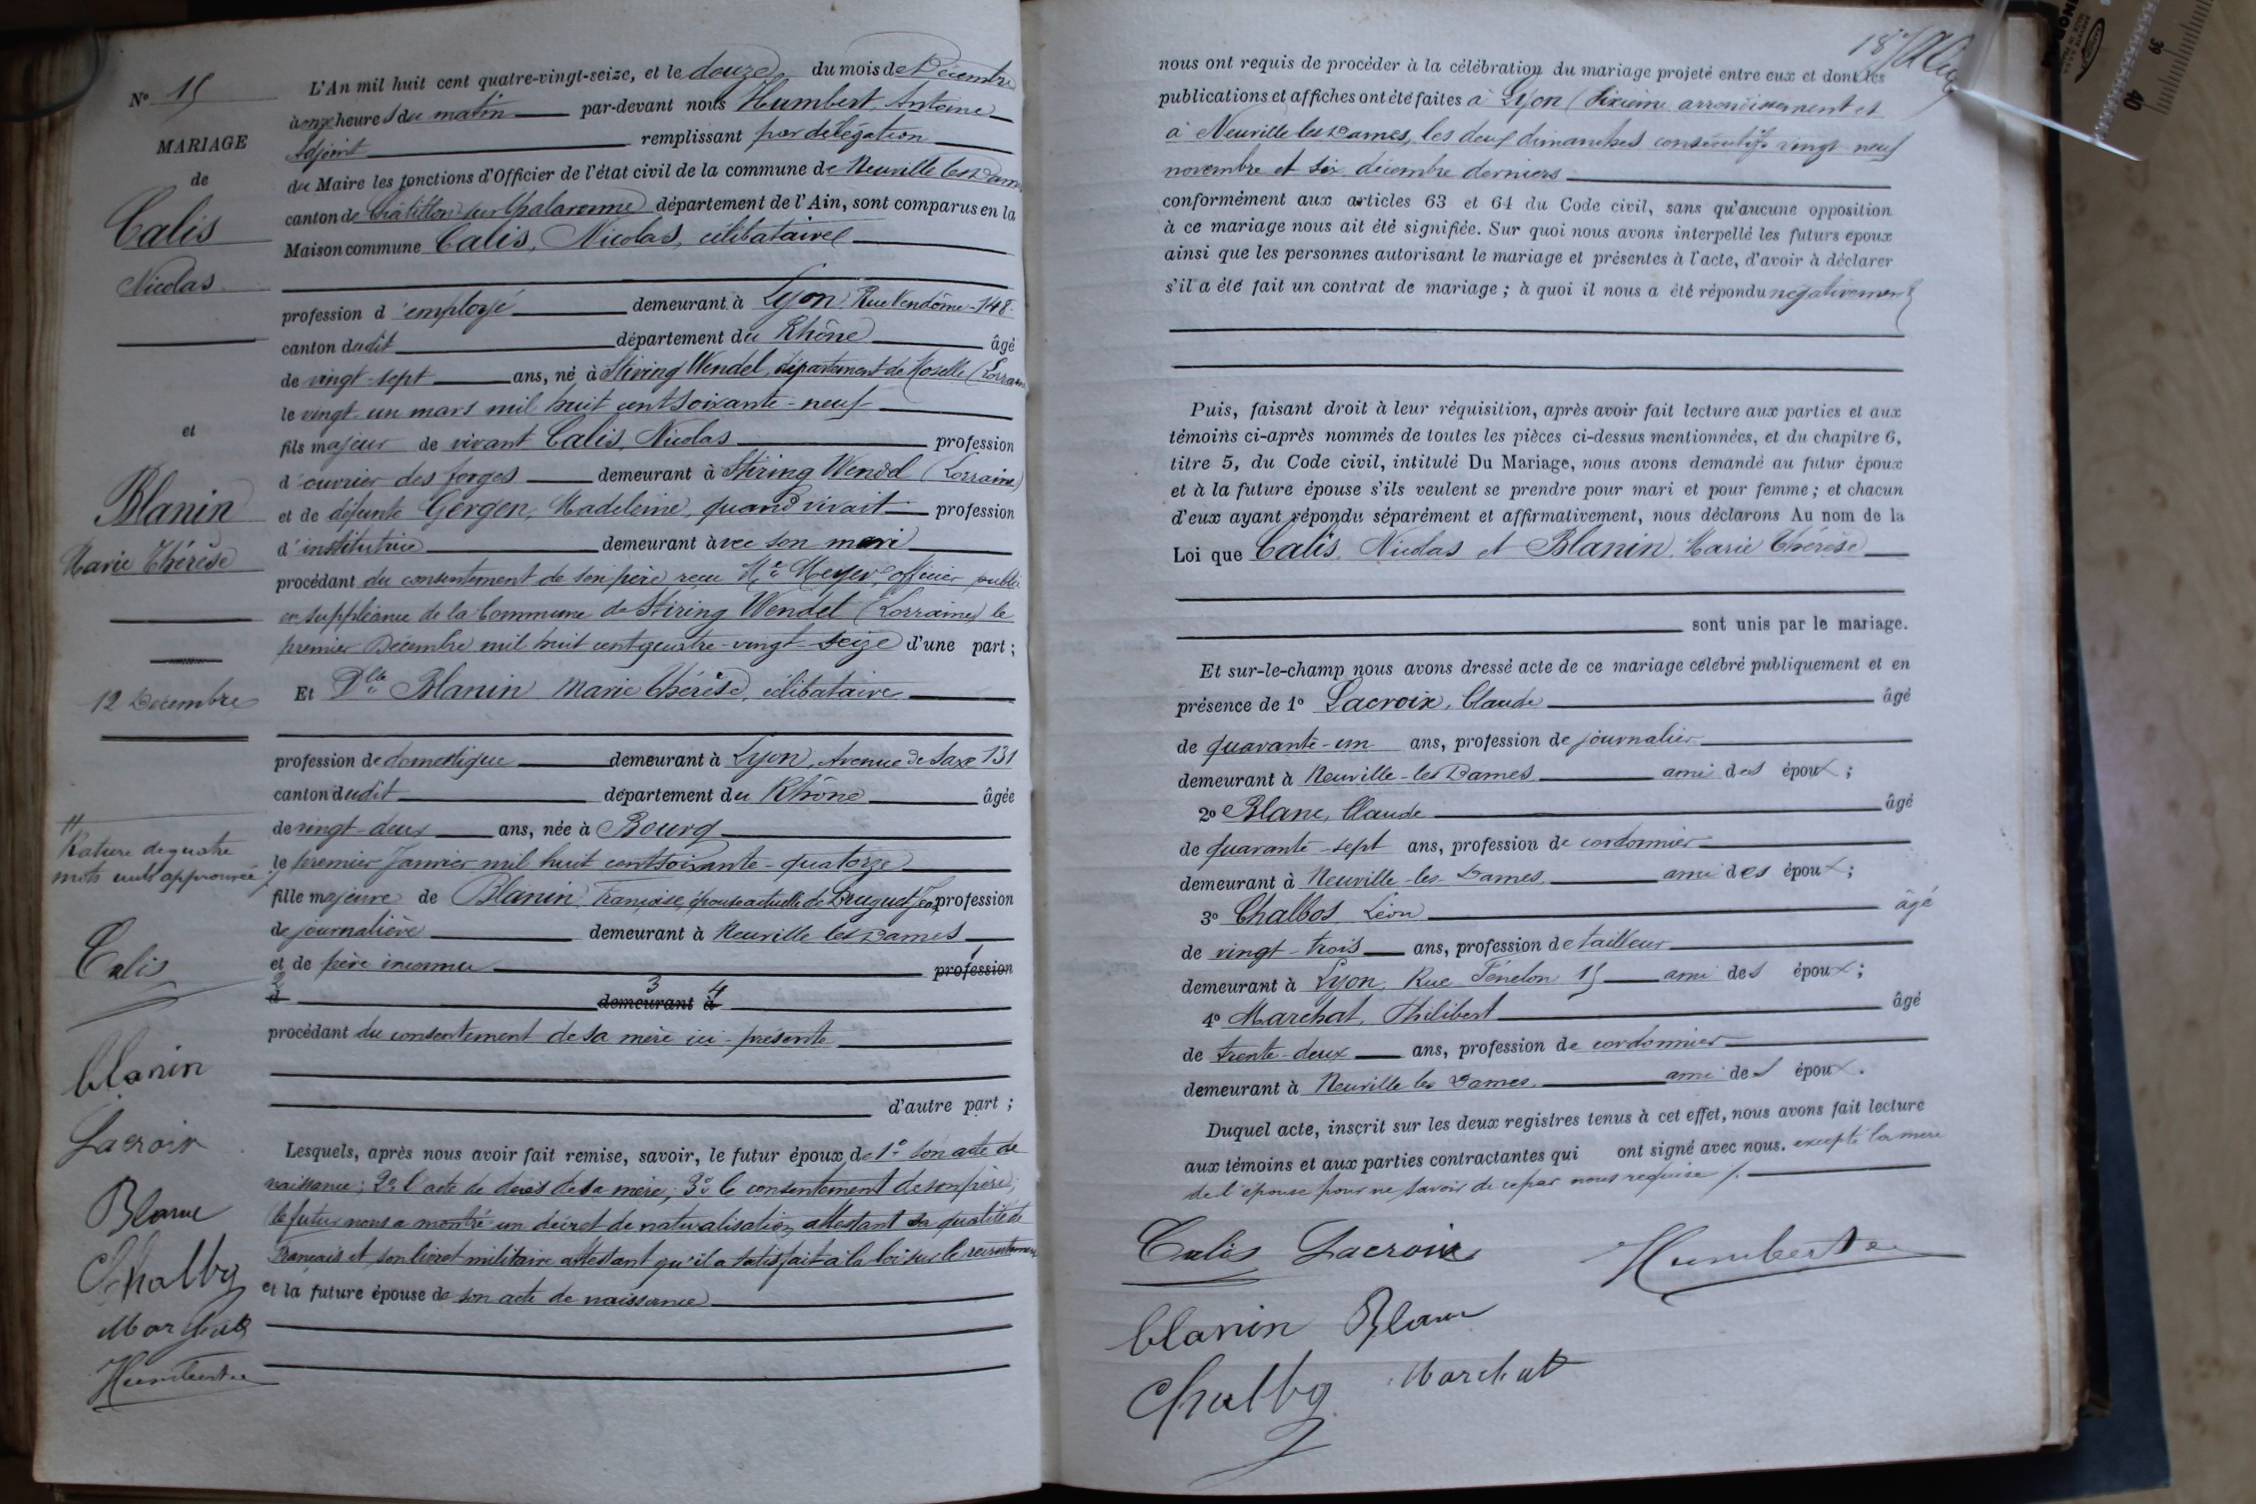 N° 15
MARIAGE
de
Calis
Nicolas
et
Blanin
Marie Thérèse
12 Décembre
Rature de quatre
mots nuls approuvée
Calis
blanin
Lacroix
Blanc
Chalbos
Marchat
Humbert
L'An mil huit cent quatre-vingt-seize, et le douze du mois de Décembre
à onze heures du matin par-devant nous Humbert Antoine
Adjoint remplissant par délégation
du Maire les fonctions d'Officier de l'état civil de la commune de Neuville les Dames
canton de Châtillon sur Chalaronne département de l'Ain, sont comparus en la
Maison commune Calis, Nicolas, célibataire
profession d'employé demeurant à Lyon, Rue Vendôme-148
canton dudit département du Rhône âgé
de vingt-sept ans, né à Stiring Wendel, département de Moselle (Lorraine
le vingt un mars mil huit cent soixante-neuf
fils majeur de vivant Calis, Nicolas profession
d'ouvrier des forges demeurant à Stiring Wendel (Lorraine)
et de défunte Gergen, Madeleine, quand vivait profession
d'institutrice demeurant avec son mari
procédant du consentement de son père reçu Me Meyer, officier public
en suppléance de la Commune de Stiring Wendel (Lorraine) le
premier Décembre mil huit cent quatre-vingt-seize d'une part ;
Et Dlle Blanin Marie Thérèse, célibataire
profession de domestique demeurant à Lyon, Avenue de Saxe 131
canton dudit département du Rhône âgée
de vingt-deux ans, née à Bourg
le premier Janvier mil huit cent soixante-quatorze
fille majeure de Blanin, Françoise, épouse actuelle de Bruguet Jean profession
de journalière demeurant à Neuville les Dames
et de père inconnu profession 1
2 d 3 demeurant 4 à
procédant du consentement de sa mère ici-présente
d'autre part ;
Lesquels, après nous avoir fait remise, savoir, le futur époux de 1° son acte de
naissance; 2° l'acte de décès de sa mère; 3° le consentement de son père;
le futur nous a montré un décret de naturalisation attestant sa qualité de
Français et son livret militaire attestant qu'il a satisfait à la loi sur le recrutement
et la future épouse de son acte de naissance
nous ont requis de procéder à la célébration du mariage projeté entre eux et dont les
publications et affiches ont été faites à Lyon (Sixième arrondissement et
à Neuville les Dames, les deux dimanches consécutifs vingt neuf
novembre et six décembre derniers
conformément aux articles 63 et 64 du Code civil, sans qu'aucune opposition
à ce mariage nous ait été signifiée. Sur quoi nous avons interpellé les futurs époux
ainsi que les personnes autorisant le mariage et présentes à l'acte, d'avoir à déclarer
s'il a été fait un contrat de mariage ; à quoi il nous a été répondu négativement
Puis, faisant droit à leur réquisition, après avoir fait lecture aux parties et aux
témoins ci-après nommés de toutes les pièces ci-dessus mentionnées, et du chapitre 6,
titre 5, du Code civil, intitulé Du Mariage, nous avons demandé au futur époux
et à la future épouse s'ils veulent se prendre pour mari et pour femme ; et chacun
d'eux ayant répondu séparément et affirmativement, nous déclarons Au nom de la
Loi que Calis, Nicolas et Blanin, Marie Thérèse
sont unis par le mariage.
Et sur-le-champ nous avons dressé acte de ce mariage célébré publiquement et en
présence de 1° Lacroix, Claude âgé
de quarante-un ans, profession de journalier
demeurant à Neuville-les-Dames ami des époux ;
2° Blanc, Claude âgé
de quarante-sept ans, profession de cordonnier
demeurant à Neuville-les-Dames ami des époux ;
3° Chalbos Léon âgé
de vingt-trois ans, profession de tailleur
demeurant à Lyon, Rue Fénelon 15 ami des époux ;
4° Marchat, Philibert âgé
de trente-deux ans, profession de cordonnier
demeurant à Neuville les Dames ami des époux.
Duquel acte, inscrit sur les deux registres tenus à cet effet, nous avons fait lecture
aux témoins et aux parties contractantes qui ont signé avec nous. excepté la mère
de l'épouse pour ne savoir de ce par nous requise
Calis Lacroix Humbert
blanin Blanc
Chalbos Marchat
39
40